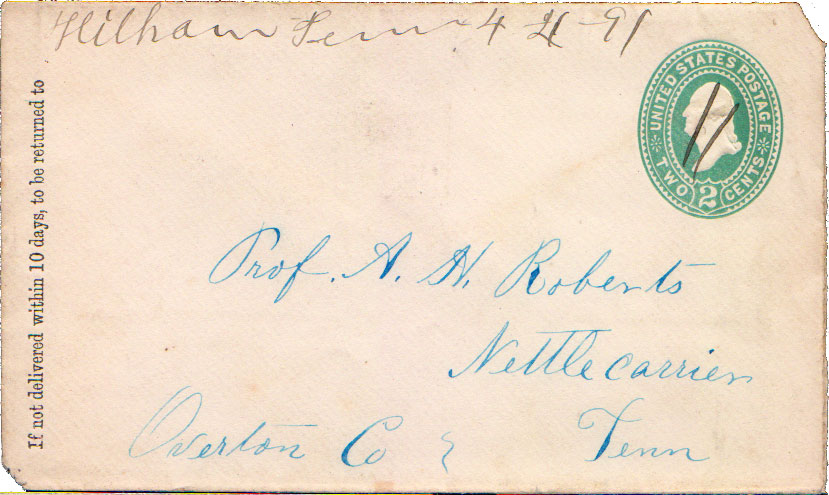 Hilham Tenn 4 21 91
UNITED STATES POSTAGE
TWO 2 CENTS
If not delivered within 10 days, to be returned to
Prof. A. H. Roberts
Nettlecarrier
Overton Co
Tenn